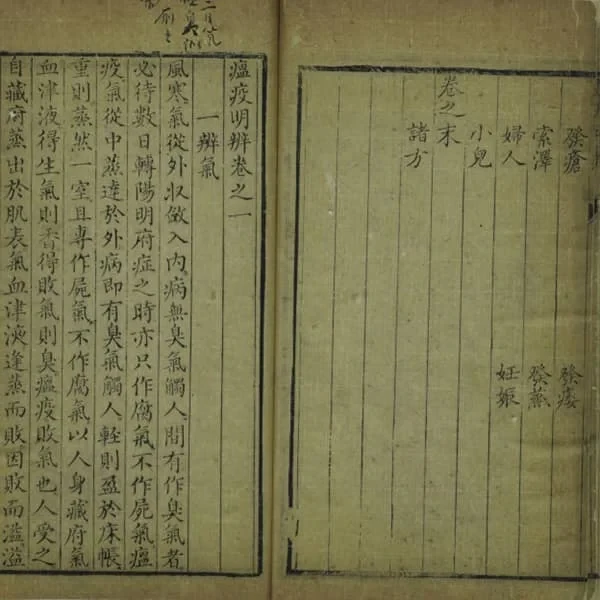 發瘡　發痿
索澤　發蒸
婦人　妊娠
小兒
卷之末
諸方
瘟疫明辨卷之一
一辨氣
風寒氣從外收斂入內病無臭氣觸人間有作臭氣者
必待數日轉陽明府症之時亦只作腐氣不作屍氣瘟
疫氣從中蒸達於外病即有臭氣觸人輕則盈於床帳
重則蒸然一室且專作屍氣不作腐氣以人身藏府氣
血津液得生氣則香得敗氣則臭瘟疫敗氣也人受之
自藏府蒸出於肌表氣血津液逢蒸而敗因敗而溢溢